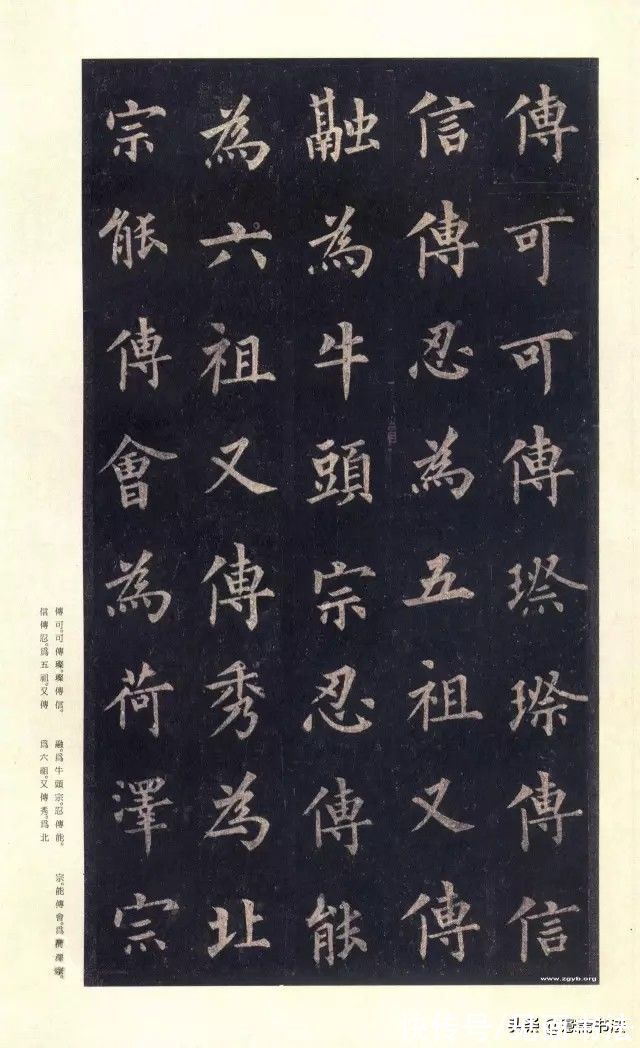 傳可可傳璨璨傳信
信傳忍為五祖又傳
融為牛頭宗忍傳能
為六祖又傳秀為北
宗能傳會為荷澤宗
傳可。可傳璨。璨傳信。
信傳忍。爲五祖。又傳
融。爲牛頭宗。忍傳能。
爲六祖。又傳秀。爲北
宗。能傳會。爲荷澤宗。
www.zgyb.org
快传号
头条
书法